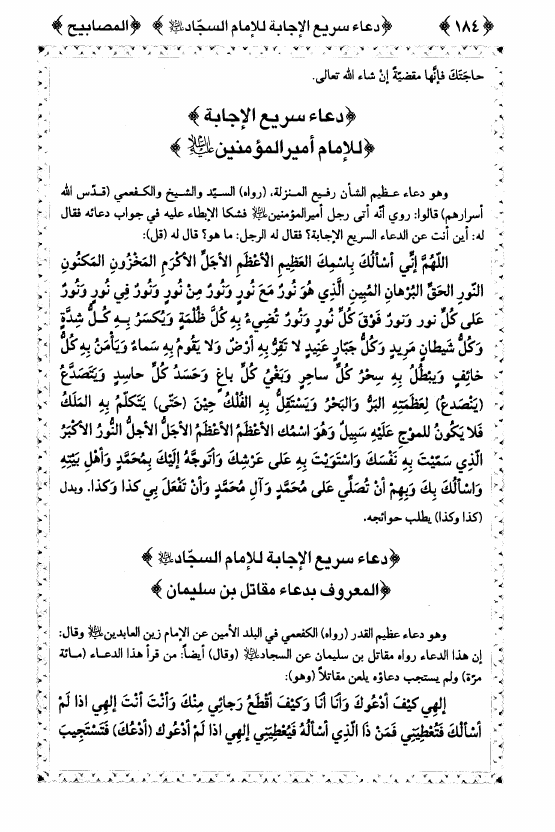 ﴿١٨٤﴾ ﴿دعاء سريع الإجابة للإمام السجّاد ﷷ﴾ ﴿المصابيح﴾
حاجَتَكَ فإنَّها مقضيّةٌ إنْ شاء الله تعالى.
﴿دعاء سريع الإجابة﴾
﴿للإمام أمير المؤمنين﴾
وهو دعاء عظيم الشأن رفيع المنزلة، (رواه) السيّد والشيخ والكفعمي (قدّس الله
أسرارهم) قالوا: روي أنّه أتى رجل أمير المؤمنين فشكا الإبطاء عليه في جواب دعائه فقال
له: أين أنت عن الدعاء السريع الإجابة؟ فقال له الرجل: ما هو؟ قال له (قل):
اللّهمَّ إنّي أسألُكَ بِاسمِكَ العَظِيمِ الأعْظَمِ الأجَلِّ الأكْرَمِ المَخْزُونِ المَكنُونِ
النّورِ الحَقِّ البُرْهانِ المُبينِ الَّذي هُوَ نُورٌ مَعَ نُورٍ وَنُورٌ مِنْ نُورٍ وَنُورٌ فِي نُورٍ وَنُورٌ
عَلى كُلِّ نور وَنورٌ فَوْقَ كُلِّ نُورٍ وَنُورٌ تُضيءُ بِهِ كُلَّ ظُلْمَةٍ وَيُكسَرُ بِهِ كُلُّ شِدَّةٍ
وَكُلُّ شيطانٍ مَريدٍ وَكُلُّ جَبّارٍ عَنِيدٍ لا تَقِرُّ بِهِ أرْضٌ وَلا يَقومُ بِهِ سَماءٌ وَيأمَنُ بِهِ كُلُّ
خائِفٍ وَيبْطُلُ بِهِ سِحْرُ كُلِّ ساحِرٍ وَبَغْيُ كُلِّ باغٍ وَحَسَدُ كُلِّ حاسِدٍ وَيَتَصَدَّعُ
(يَنْصَدعُ) لِعَظَمَتِهِ البَرُّ وَالبَحْرُ وَيَسْتَقِلُّ بِهِ الفُلْكُ حِيْنَ (حَتّى) يَتَكَلَّمُ بِهِ المَلَكُ
فَلا يَكُونُ لِلموْجِ عَلَيْهِ سَبِيلٌ وَهُوَ اسْمُكَ الأعْظَمُ الأعْظَمُ الأجَلُّ الأجلُّ النُّورُ الأكْبَرُ
الَّذي سَمَّيْتَ بِهِ نَفْسَكَ وَاسْتَوَيْتَ بِهِ عَلى عَرْشِكَ وَأتَوَجَّهُ إلَيْكَ بِمُحَمَّدٍ وَأهْلِ بَيْتِهِ
وَاسْألُكَ بِكَ وَبِهِمْ أنْ تُصَلِّي عَلى مُحَمَّدٍ وَآلِ مُحَمَّدٍ وَأنْ تَفْعَلَ بِي كَذا وَكَذا. وبدل
(كذا وكذا) يطلب حوائجه.
﴿دعاء سريع الإجابة للإمام السجّاد﴾
﴿المعروف بدعاء مقاتل بن سليمان﴾
وهو دعاء عظيم القدر (رواه) الكفعمي في البلد الأمين عن الإمام زين العابدين وقال:
إن هذا الدعاء رواه مقاتل بن سليمان عن السجاد (وقال) أيضاً: من قرأ هذا الدعاء (مائة
مرّة) ولم يستجب دعاؤه يلعن مقاتلاً (وهو):
إلهِي كَيْفَ أدْعُوكَ وَأنَا أنَا وَكَيْفَ أقْطَعُ رَجائِي مِنْكَ وَأنْتَ أنْتَ إلهِي اذا لَمْ
أسْألُكَ فَتُعْطِيَنِي فَمَنْ ذَا الَّذِي أسْألُهُ فَيُعْطِيَنِي إلهِي اذا لَمْ أدْعُوك (أدْعُكَ) فَتَسْتَجِيبَ